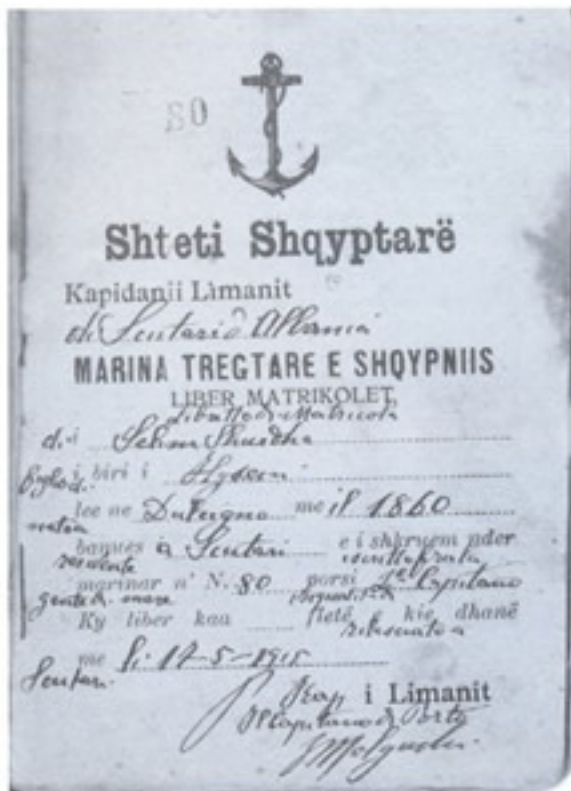 80
Shteti Shqyptarë
Kapidanii Limanit
di Scutari d'Albania
MARINA TREGTARE E SHQYPNIIS
LIBER MATRIKOLET,
Libretto di Matricola
di
i biri i Hysen
figlio di
lee ne Dulcigno me il 1860
banues a Scutari e i shkruem nder
residente
marinar n' N. 80 porsi 1° Capitano
gente di mare
Ky liber kaa fletë kje dhanë
rilasciato a
me li 17-5-1915
Scutari.
Kap i Limanit
Il Capitano di Porto